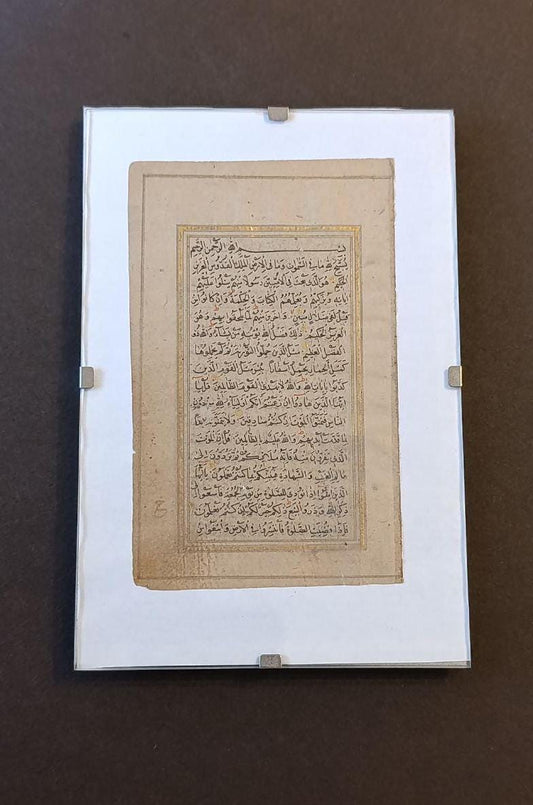 بسم الله الرحمن الرحيم
يسبح لله ما في السموات وما في الارض الملك القدوس العزيز
الحكيم هو الذي بعث في الاميين رسولا منهم يتلوا عليهم
اياته ويزكيهم ويعلمهم الكتاب والحكمة وان كانوا من
قبل لفي ضلال مبين واخرين منهم لما يلحقوا بهم وهو
العزيز الحكيم ذلك فضل الله يؤتيه من يشاء والله ذو
الفضل العظيم مثل الذين حملوا التورية ثم لم يحملوها
كمثل الحمار يحمل اسفارا بئس مثل القوم الذين
كذبوا بايات الله والله لا يهدي القوم الظالمين قل يا
ايها الذين هادوا ان زعمتم انكم اولياء لله من دون
الناس فتمنوا الموت ان كنتم صادقين ولا يتمنونه ابدا
بما قدمت ايديهم والله عليم بالظالمين قل ان الموت
الذي تفرون منه فانه ملاقيكم ثم تردون الى
عالم الغيب والشهادة فينبئكم بما كنتم تعملون يا ايها
الذين امنوا اذا نودي للصلوة من يوم الجمعة فاسعوا الى
ذكر الله وذروا البيع ذلكم خير لكم ان كنتم تعلمون
فاذا قضيت الصلوة فانتشروا في الارض وابتغوا من